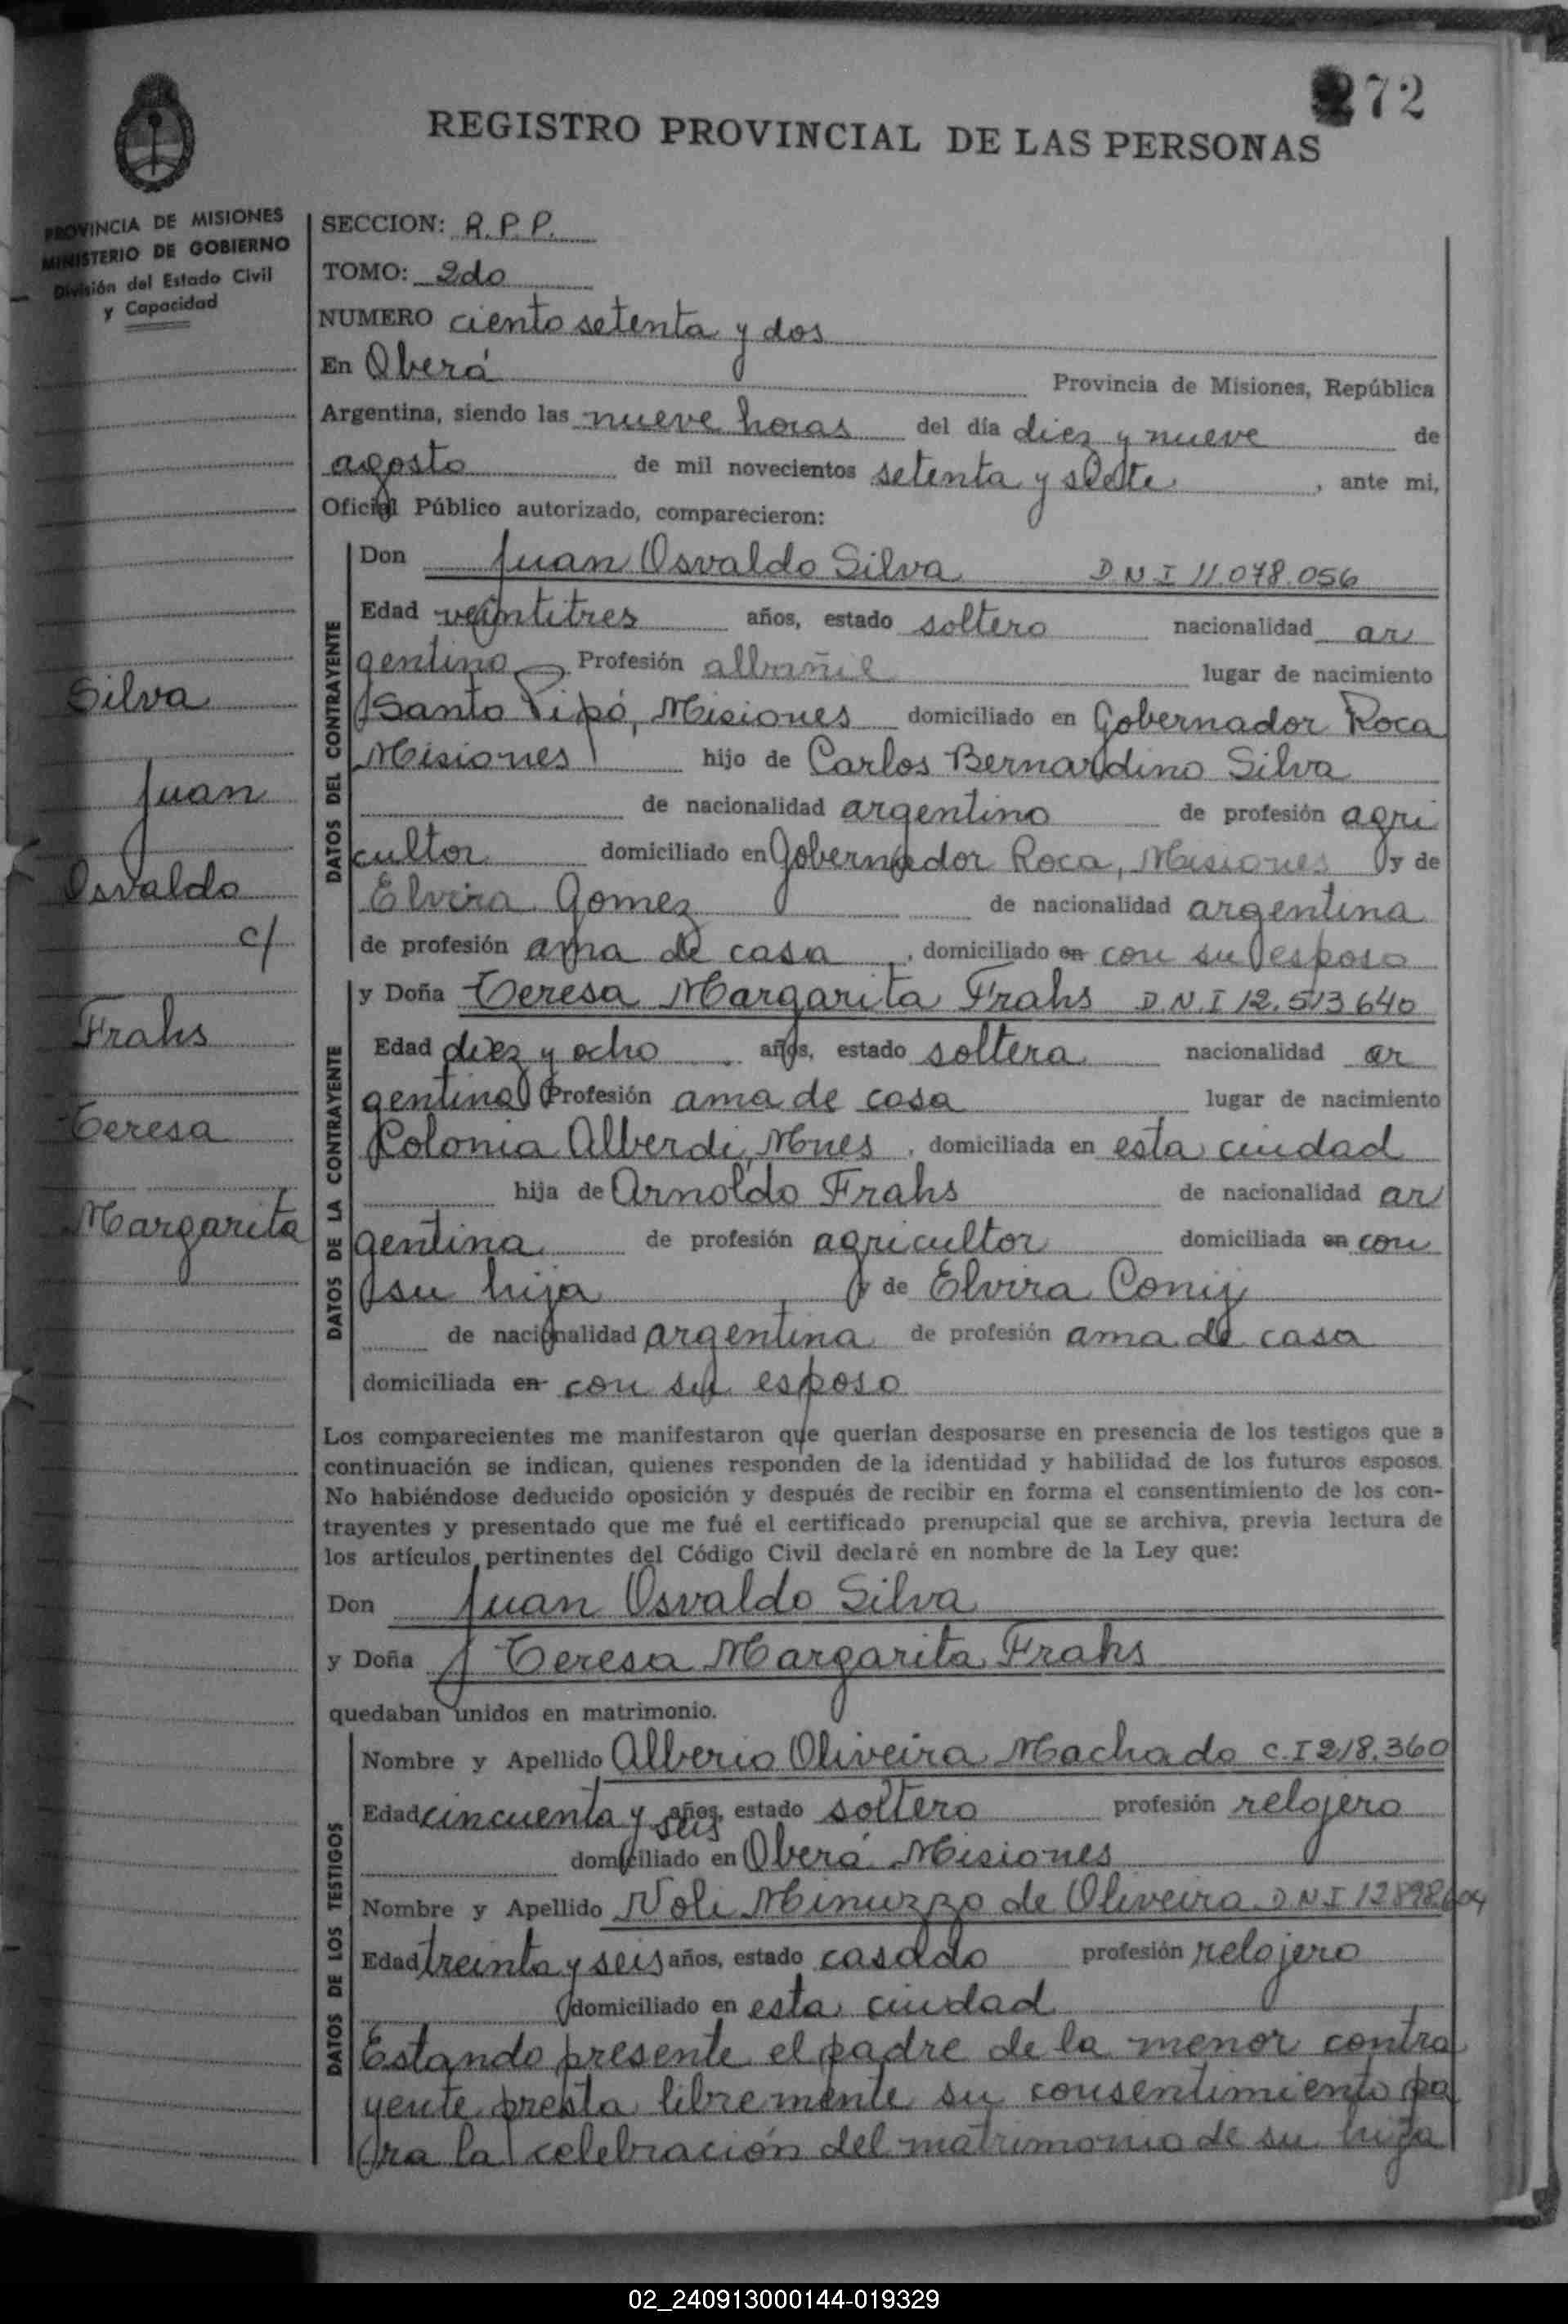 272
REGISTRO PROVINCIAL DE LAS PERSONAS
PROVINCIA DE MISIONES
MINISTERIO DE GOBIERNO
División del Estado Civil
y Capacidad
SECCION: R.P.P.
TOMO: 2do
NUMERO ciento setenta y dos
En Oberá Provincia de Misiones, República
Argentina, siendo las nueve horas del día diez y nueve de
agosto de mil novecientos setenta y siete, ante mi,
Oficial Público autorizado, comparecieron:
Silva
Juan
Osvaldo
c/
Frahs
Teresa
Margarita
DATOS DEL CONTRAYENTE
Don Juan Osvaldo Silva DNI 11.078.056
Edad veintitres años, estado soltero nacionalidad ar
gentino Profesión albañil lugar de nacimiento
Santo Pipó, Misiones domiciliado en Gobernador Roca
Misiones hijo de Carlos Bernardino Silva
de nacionalidad argentino de profesión agri
cultor domiciliado en Gobernador Roca, Misiones y de
Elvira Gomez de nacionalidad argentina
de profesión ama de casa, domiciliado en con su esposo
DATOS DE LA CONTRAYENTE
y Doña Teresa Margarita Frahs D.N.I 12.513.640
Edad diez y ocho años, estado soltera nacionalidad ar
gentina Profesión ama de casa lugar de nacimiento
Colonia Alberdi, Mnes, domiciliada en esta ciudad
hija de Arnoldo Frahs de nacionalidad ar
gentina de profesión agricultor domiciliada en con
su hija y de Elvira Coniz
de nacionalidad argentina de profesión ama de casa
domiciliada en con su esposo
Los comparecientes me manifestaron que querían desposarse en presencia de los testigos que a
continuación se indican, quienes responden de la identidad y habilidad de los futuros esposos.
No habiéndose deducido oposición y después de recibir en forma el consentimiento de los con-
trayentes y presentado que me fué el certificado prenupcial que se archiva, previa lectura de
los artículos pertinentes del Código Civil declaré en nombre de la Ley que:
Don Juan Osvaldo Silva
y Doña Teresa Margarita Frahs
quedaban unidos en matrimonio.
DATOS DE LOS TESTIGOS
Nombre y Apellido Alberio Oliveira Machado C.I 218.360
Edad cincuenta y seis años, estado soltero profesión relojero
domiciliado en Oberá Misiones
Nombre y Apellido Noli Minuzzo de Oliveira DNI 12898604
Edad treinta y seis años, estado casado profesión relojero
domiciliado en esta ciudad
Estando presente el padre de la menor contra
yente presta libremente su consentimiento pa
ra la celebración del matrimonio de su hija
02_240913000144-019329